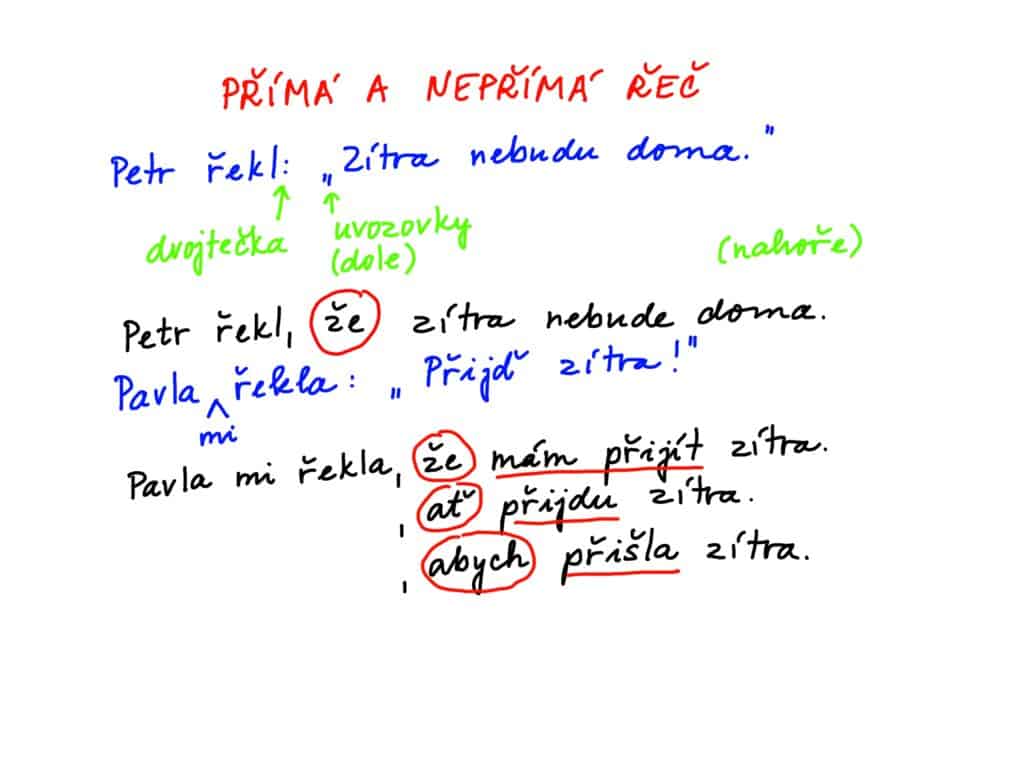 PŘÍMÁ A NEPŘÍMÁ ŘEČ
Petr řekl: „Zítra nebudu doma."
dvojtečka uvozovky (nahoře)
(dole)
Petr řekl, že zítra nebude doma.
Pavla řekla: „Přijď zítra!"
mi
Pavla mi řekla, že mám přijít zítra.
, ať přijdu zítra.
, abych přišla zítra.